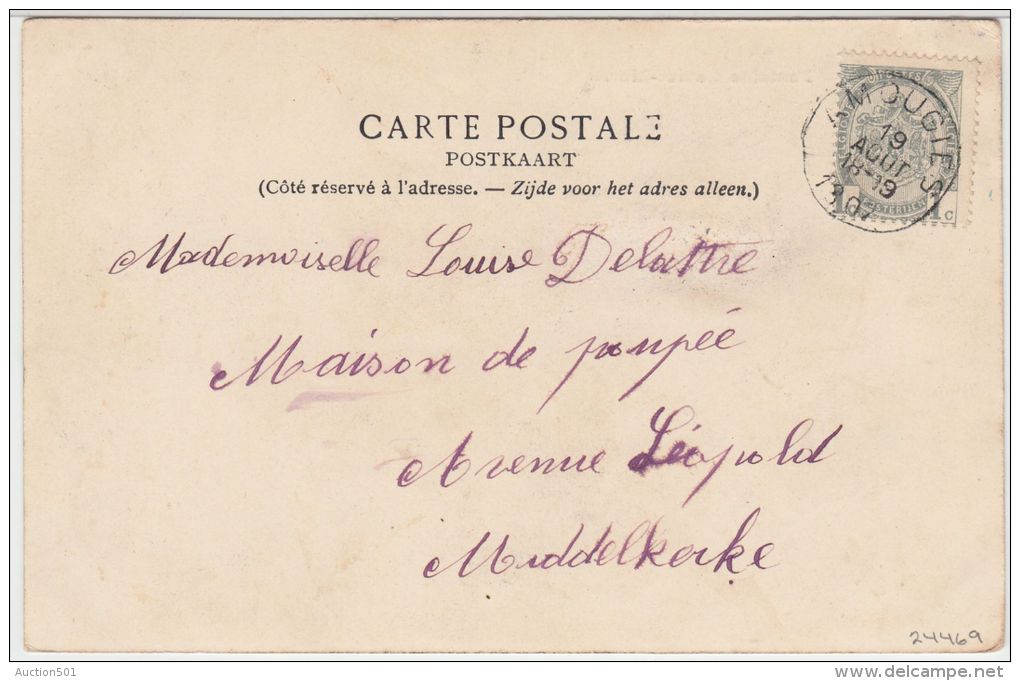 CARTE POSTALE
POSTKAART
(Côté réservé à l'adresse. — Zijde voor het adres alleen.)
AMOUGIES
19
AOUT
18-19
1907
1c
Mademoiselle Louise Delattre
Maison de poupée
Avenue Léopold
Middelkerke
24469
Auction501
www.delcampe.net